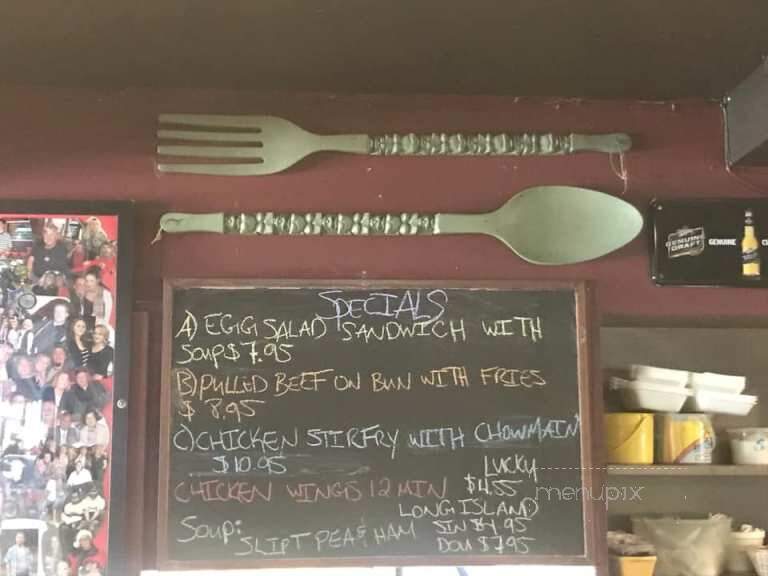 SPECIALS
A) EGG SALAD SANDWICH WITH
SOUP $7.95
B) PULLED BEEF ON BUN WITH FRIES
$ 8.95
C) CHICKEN STIRFRY WITH CHOWMAIN
$10.95
LUCKY
CHICKEN WINGS 12 MIN $4.55
LONG ISLAND)
SOUP: SIN $4.95
SLIPT PEA & HAM DOU $7.95
GENUINE
DRAFT
GENUINE
menupix